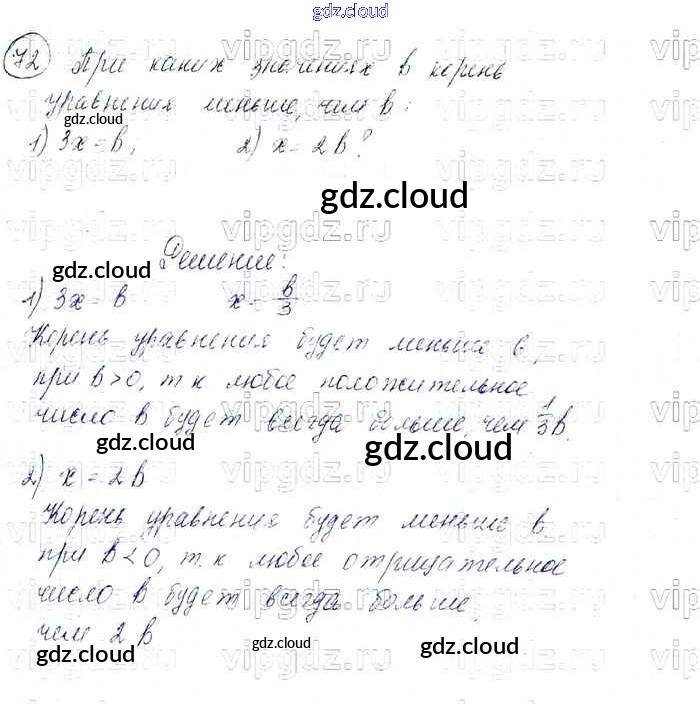 gdz.cloud
72 При каких значениях в корень
уравнения меньше, чем в:
1) 3х = в, 2) х = 2в?
gdz.cloud
gdz.cloud
Решение:
gdz.cloud
1) 3х = в х = в/3
Корень уравнения будет меньше в,
при в > 0, т.к любое положительное
число в будет всегда больше, чем 1/3 в.
gdz.cloud
gdz.cloud
2) х = 2в
Корень уравнения будет меньше в
при в < 0, т.к любое отрицательное
число в будет всегда больше,
чем 2в
gdz.cloud
gdz.cloud
gdz.cloud
vipgdz.ru